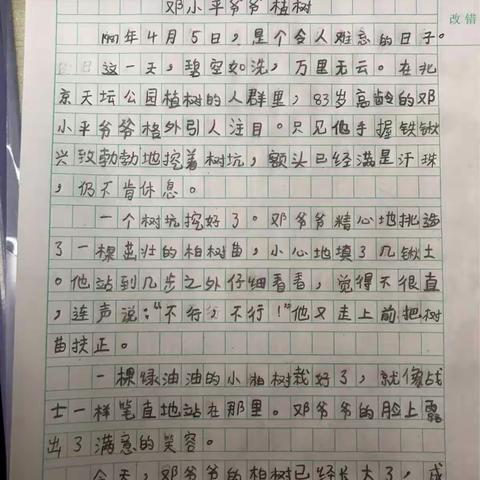 邓小平爷爷植树
改错
1987年4月5日，是个令人难忘的日子。
这一天，碧空如洗，万里无云。在北
京天坛公园植树的人群里，83岁高龄的邓
小平爷爷格外引人注目。只见他手握铁锹
兴致勃勃地挖着树坑，额头已经满是汗珠
，仍不肯休息。
一个树坑挖好了。邓爷爷精心地挑选
了一棵茁壮的柏树苗，小心地填了几锹土
。他站到几步之外仔细看看，觉得不很直
，连声说："不行，不行！"他又走上前把树
苗扶正。
一棵绿油油的小柏树栽好了，就像战
士一样笔直地站在那里。邓爷爷的脸上露
出了满意的笑容。
今天，邓爷爷的柏树已经长大了，成